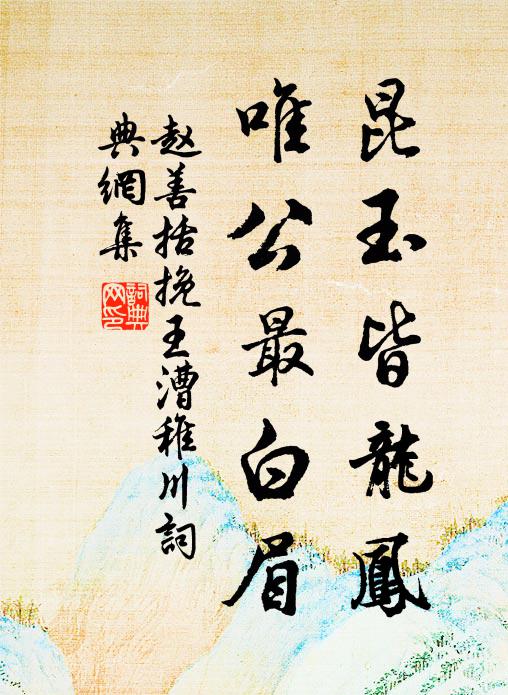 昆玉皆龍鳳
唯公最白眉
赵善括挽王漕稚川詞
典網集
詞典
网印